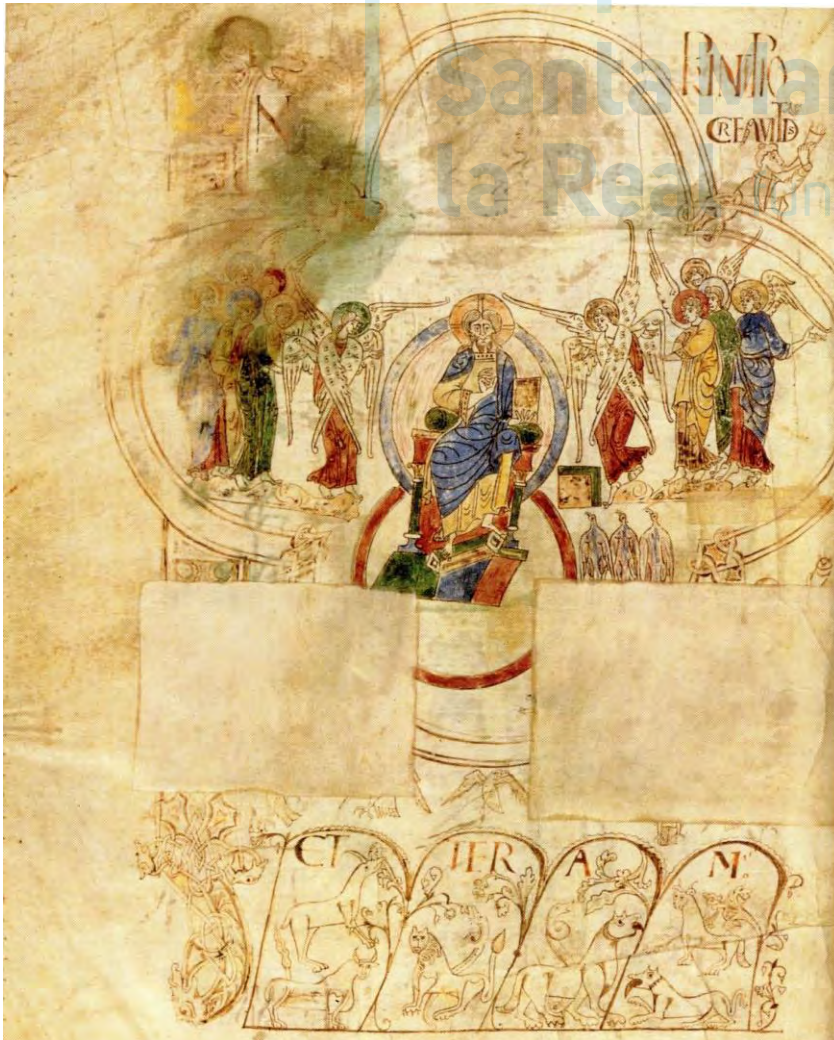 Santa Mar
la Real
N PRINCIPIO
CREAVIT DS
ET TER A M